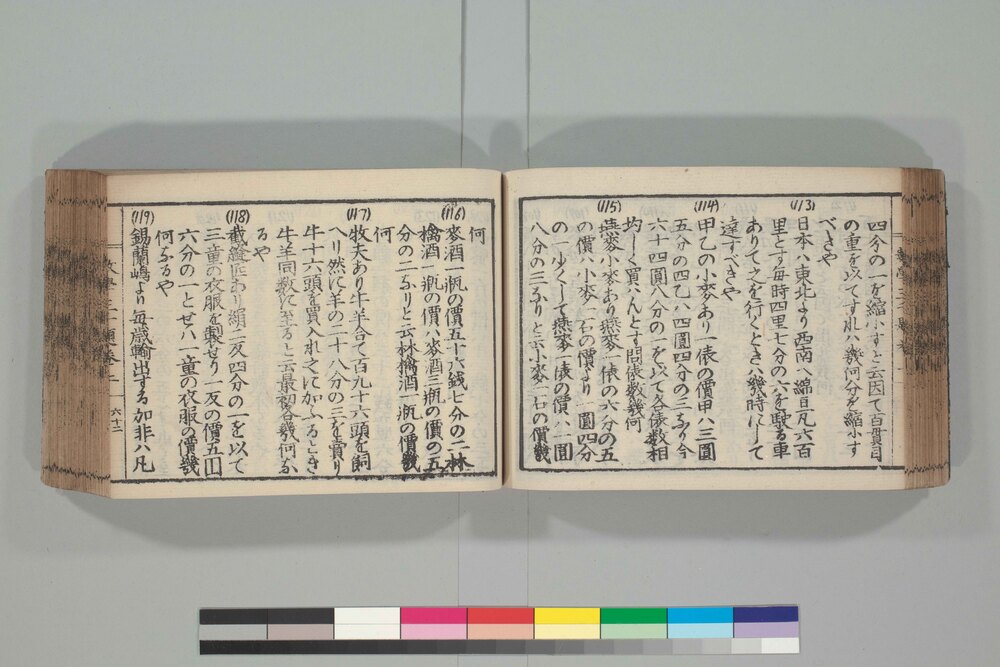 四分の一を縮小すと云因て百貫目
の重を以てすれハ幾何分を縮小す
べきや
(113)
日本ハ東北より西南ヘ綿亘凡六百
里とす毎時四里七分の六を駛る車
ありて之を行くときハ幾時にして
達すべきや
(114)
甲乙の小麥あり一俵の價甲ハ三圓
五分の四乙ハ四圓四分の三なり今
六十四圓八分の一を以て各俵数相
均しく買ハんとす問俵数幾何
(115)
燕麥小麥あり燕麥一俵の六分の五
の價ハ小麥一石の價より一圓四分
の一少くして燕麥一俵の價ハ一圓
八分の三なりと云小麥一石の價幾
何
(116)
麥酒一瓶の價五十六銭七分の二林
檎酒一瓶の價ハ麥酒三瓶の價の五
分の二なりと云林檎酒一瓶の價幾
何
(117)
牧夫あり牛羊合て百九十六頭を飼
へり然に羊の二十八分の三を賣り
牛十六頭を買入れ之に加ふるとき
牛羊同数に至ると云最初各幾何な
るや
(118)
裁縫匠あり絹一反四分の一を以て
三童の衣服を製せり一反の價五圓
六分の一とせハ一童の衣服の價幾
何なるや
(119)
錫蘭嶋より毎歳輸出する加非ハ凡
六十二